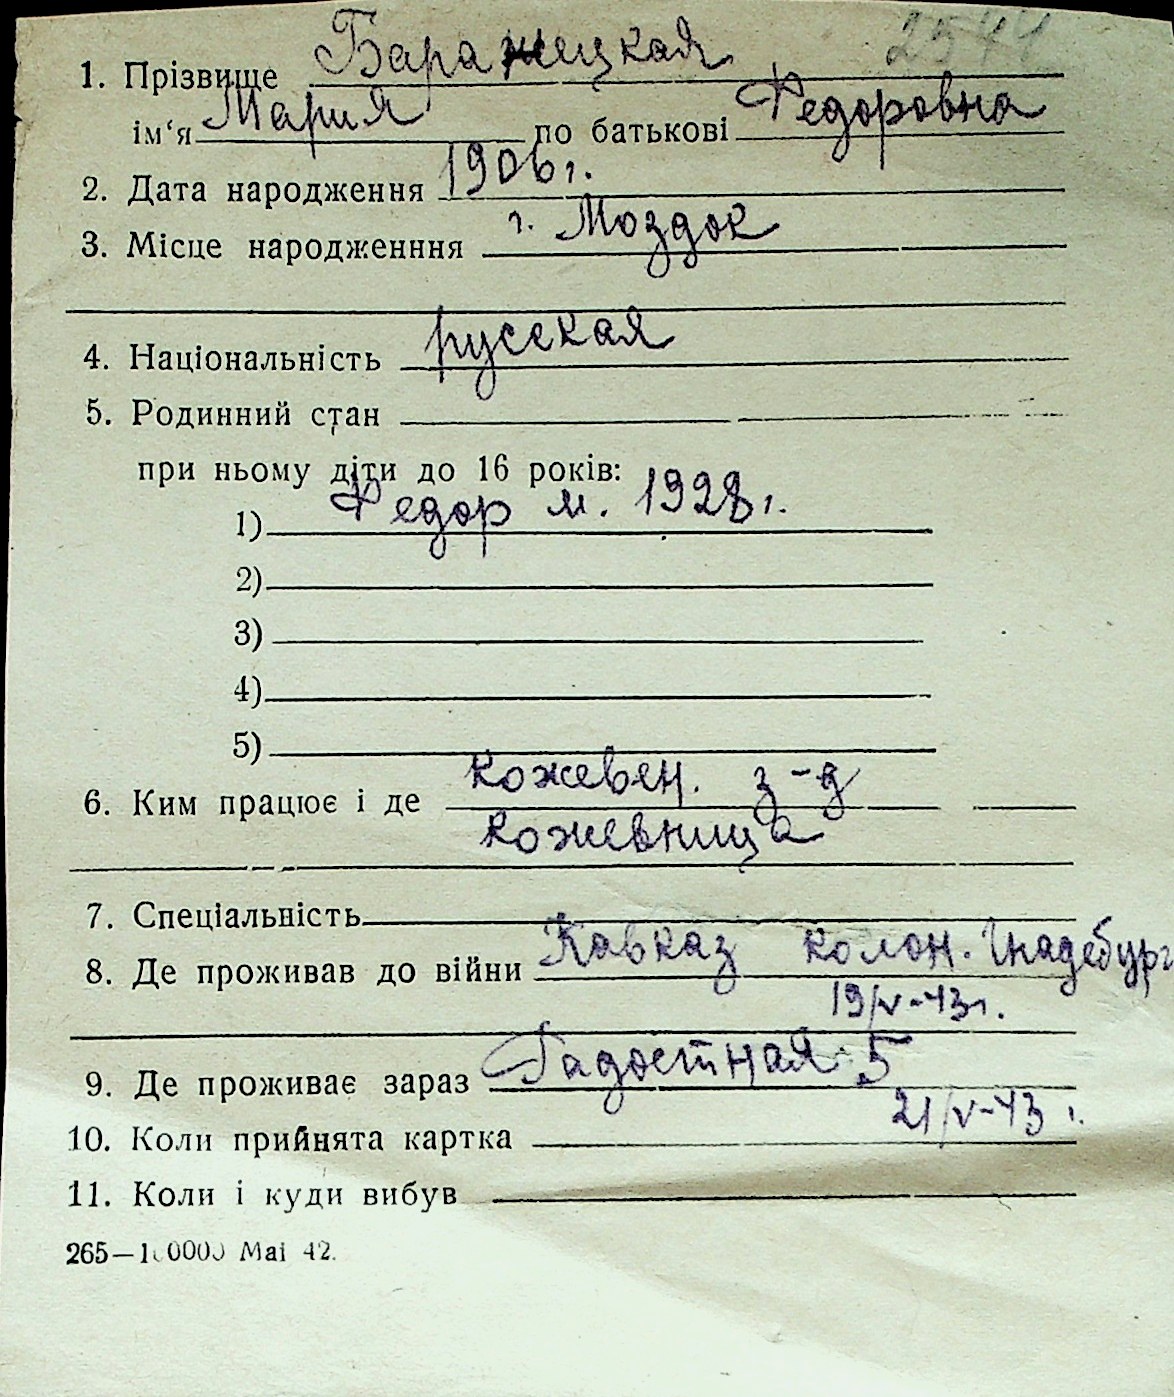 2544
1. Прізвище Баражецкая
ім'я Мария по батькові Федоровна
2. Дата народження 1906 г.
3. Місце народженння г. Моздок
4. Національність русская
5. Родинний стан
при ньому діти до 16 років:
1) Федор м. 1928 г.
2)
3)
4)
5)
6. Ким працює і де кожевен. з-д
кожевница
7. Спеціальність
8. Де проживав до війни Кавказ колон. Гнадебург
19/V-43 г.
9. Де проживає зараз Радостная 5
21/V-43 г.
10. Коли прийнята картка
11. Коли і куди вибув
265—100000 Mai 42.